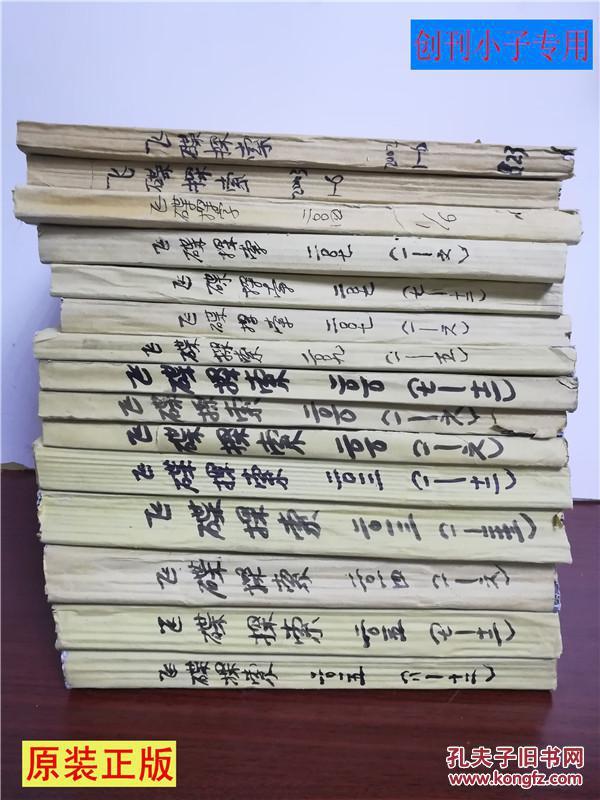 创刊小子专用
飞碟探索 2002 1-6 823
飞碟探索 2003 1-6
飞碟探索 二〇〇四 1/6
飞碟探索 二〇〇七 (一-六)
飞碟探索 二〇〇七 (七-十二)
飞碟探索 二〇〇七 (一-六)
飞碟探索 二〇〇九 (一-五)
飞碟探索 (七-十二)
飞碟探索 (一-六)
飞碟探索 (一-六)
飞碟探索 二〇一二 (一-十二)
飞碟探索 二〇一三
飞碟探索 二〇一四 (一-六)
飞碟探索 二〇一五 (七-十二)
飞碟探索 二〇一五 (八-十二)
原装正版
孔夫子旧书网
www.kongfz.com